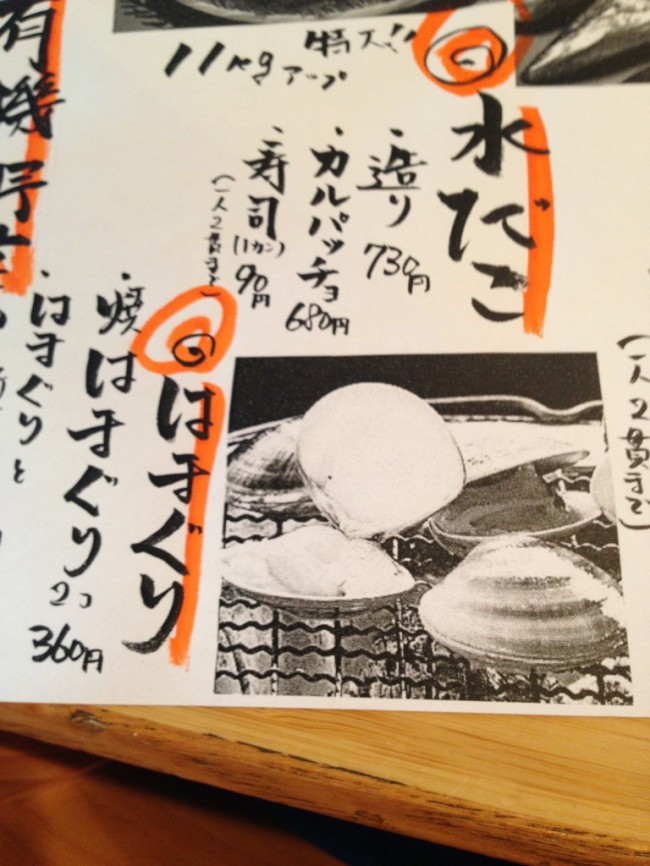 水だこ
特大!!
11kgアップ
・造り 730円
・カルパッチョ 680円
・寿司(1カン) 90円
(一人2貫まで)
(一人2貫まで)
はまぐり
・焼はまぐり 2コ 360円
・はまぐりと
有機野菜